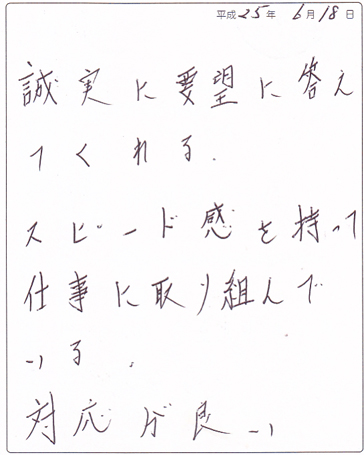 平成25年 6月18日
誠実に要望に答え
てくれる.
スピード感を持って
仕事に取り組んで
いる.
対応が良い